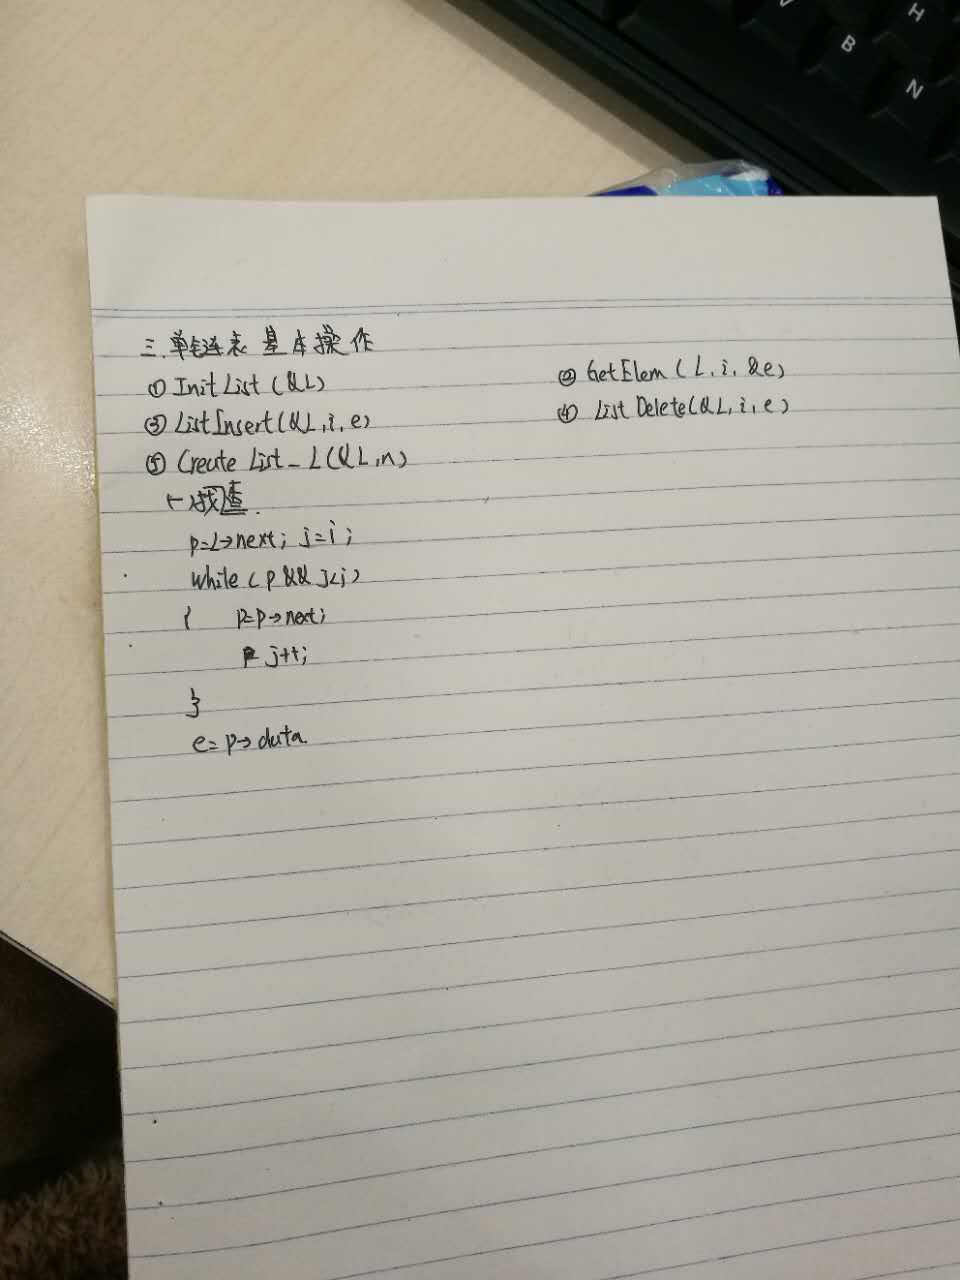 V
H
B
N
三.单链表 基本操作
① InitList (&L)
② GetElem ( L, i, &e)
③ ListInsert(&L,i,e)
④ List Delete(&L,i,e)
⑤ Create List_L(&L,n)
查
p=L->next; j=i;
while ( p && j<i)
{ p=p->next;
j++;
}
e= p-> data.